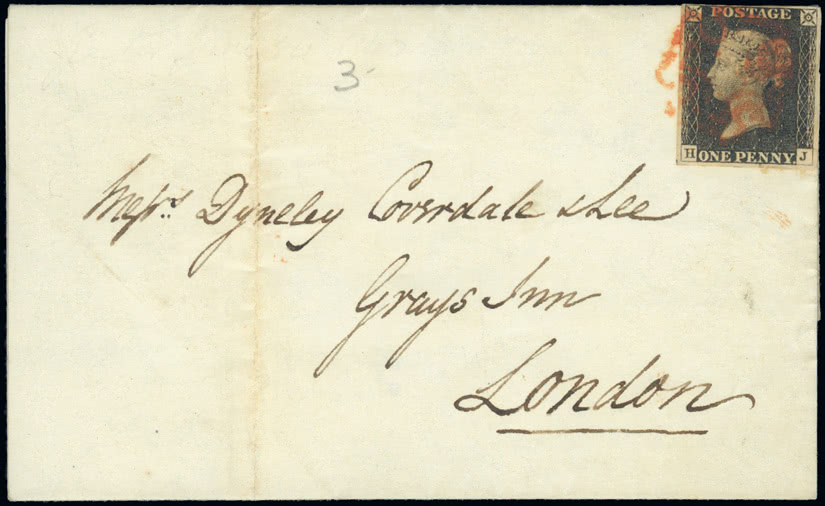 POSTAGE
H ONE PENNY J
3
Messrs. Dyneley Coverdale & Lee
Grays Inn
London